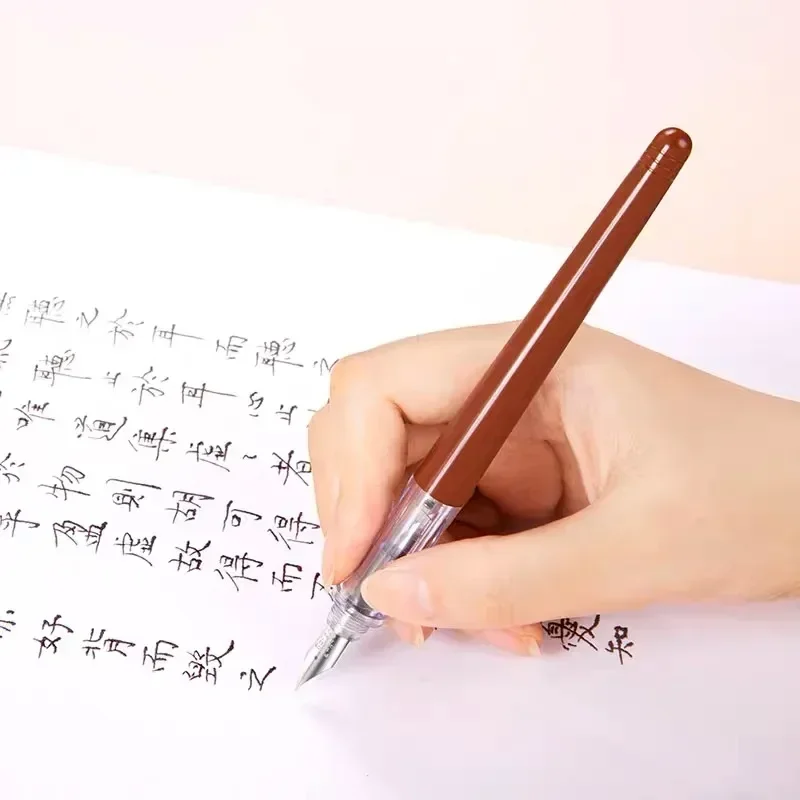 聽之於耳而聽之
聽止於耳心止
唯道集虛〻者
於物則胡可得
盈虛故得而不
亦好背而毀之
知